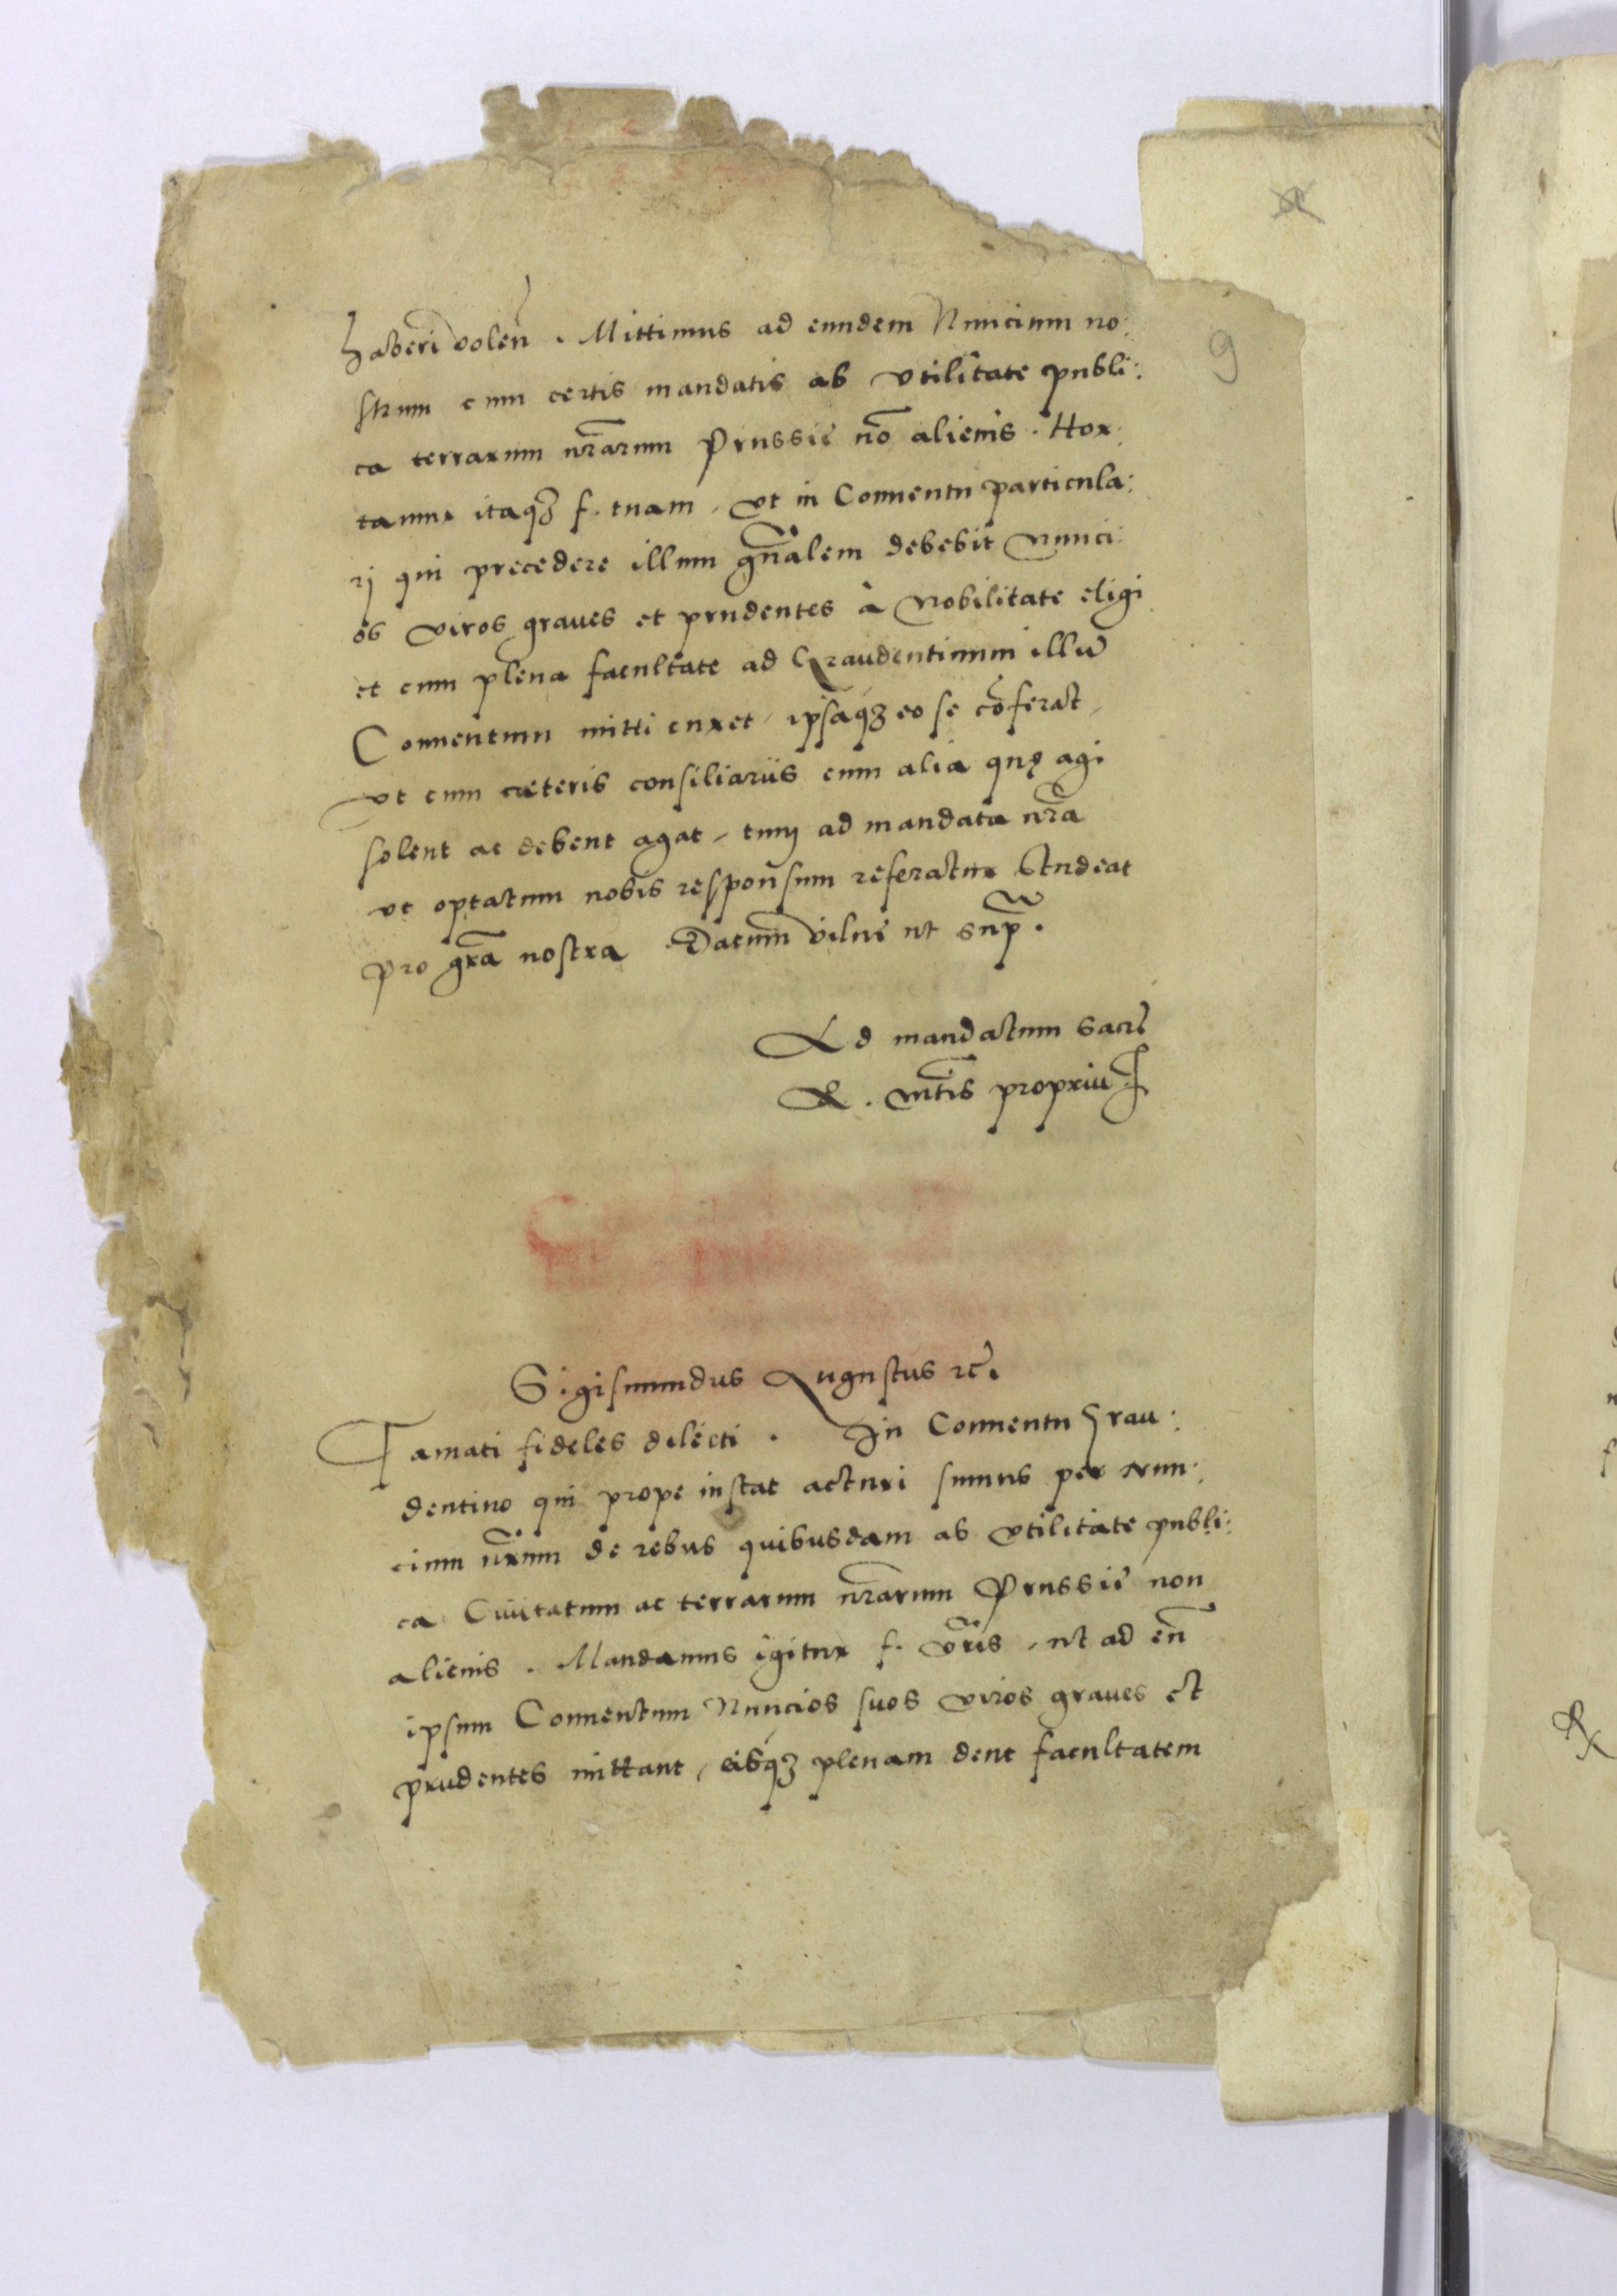 9
haberi volen̄. Mittimus ad eundem Nuncium no:
strum cum certis mandatis ab vtilitate publi:
ca terrarum nr̄arum Prussiē nō alienis. Hor:
tamur itaqȝ f. tuam, vt in Conuentu particula:
rj qui precedere illum gn̄alem debebit Nunci:
os viros graues et prudentes à Nobilitate eligi
et cum plena facultate ad Graudentinum illū
Conuentum mitti curet, ipsaqȝ eo se cōferat,
vt cum cæteris consiliariis cum alia quę agi
solent ac debent agat, tum ad mandata nr̄a
vt optatum nobis responsum referatur studeat
pro gr̄a nostra. Datum vilnē ut sup̄.
Ad mandatum sacrē
R. Mtīs propriū
Sigismundus Augustus rc̄.
Famati fideles dilecti. In Conuentu Grau:
dentino qui prope instat acturi sumus per Nun:
cium nr̄um de rebus quibusdam ab vtilitate publi:
ca Ciuitatum ac terrarum nr̄arum Prussiē non
alienis. Mandamus igitur f. vr̄is, ut ad eūn
ipsum Conuentum Nuncios suos viros graues et
prudentes mittant, eisqȝ plenam dent facultatem